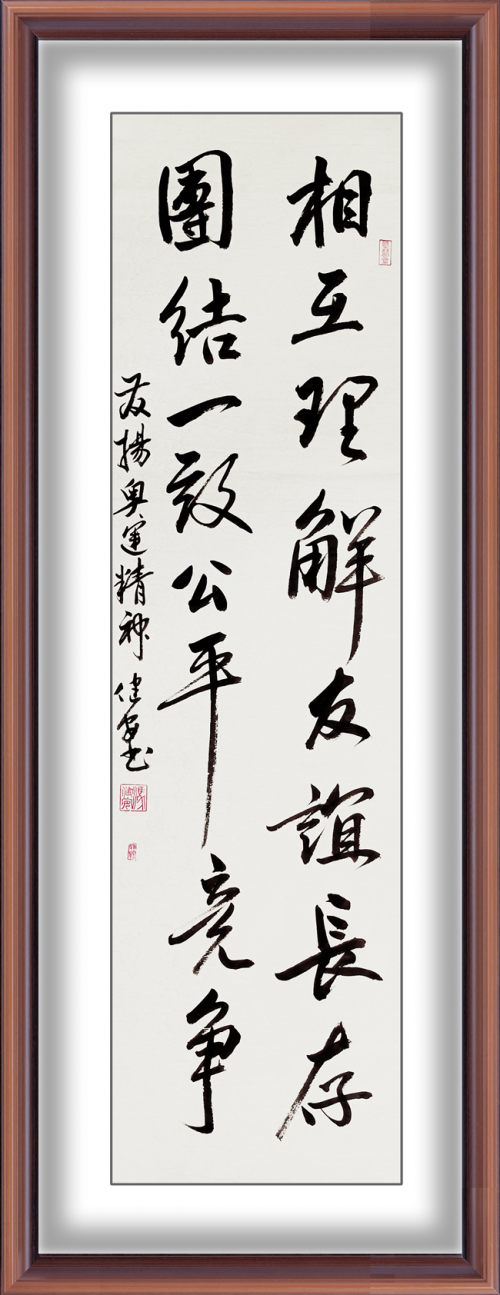 相互理解友誼長存
團結一致公平竞争
发揚奥運精神 健安书